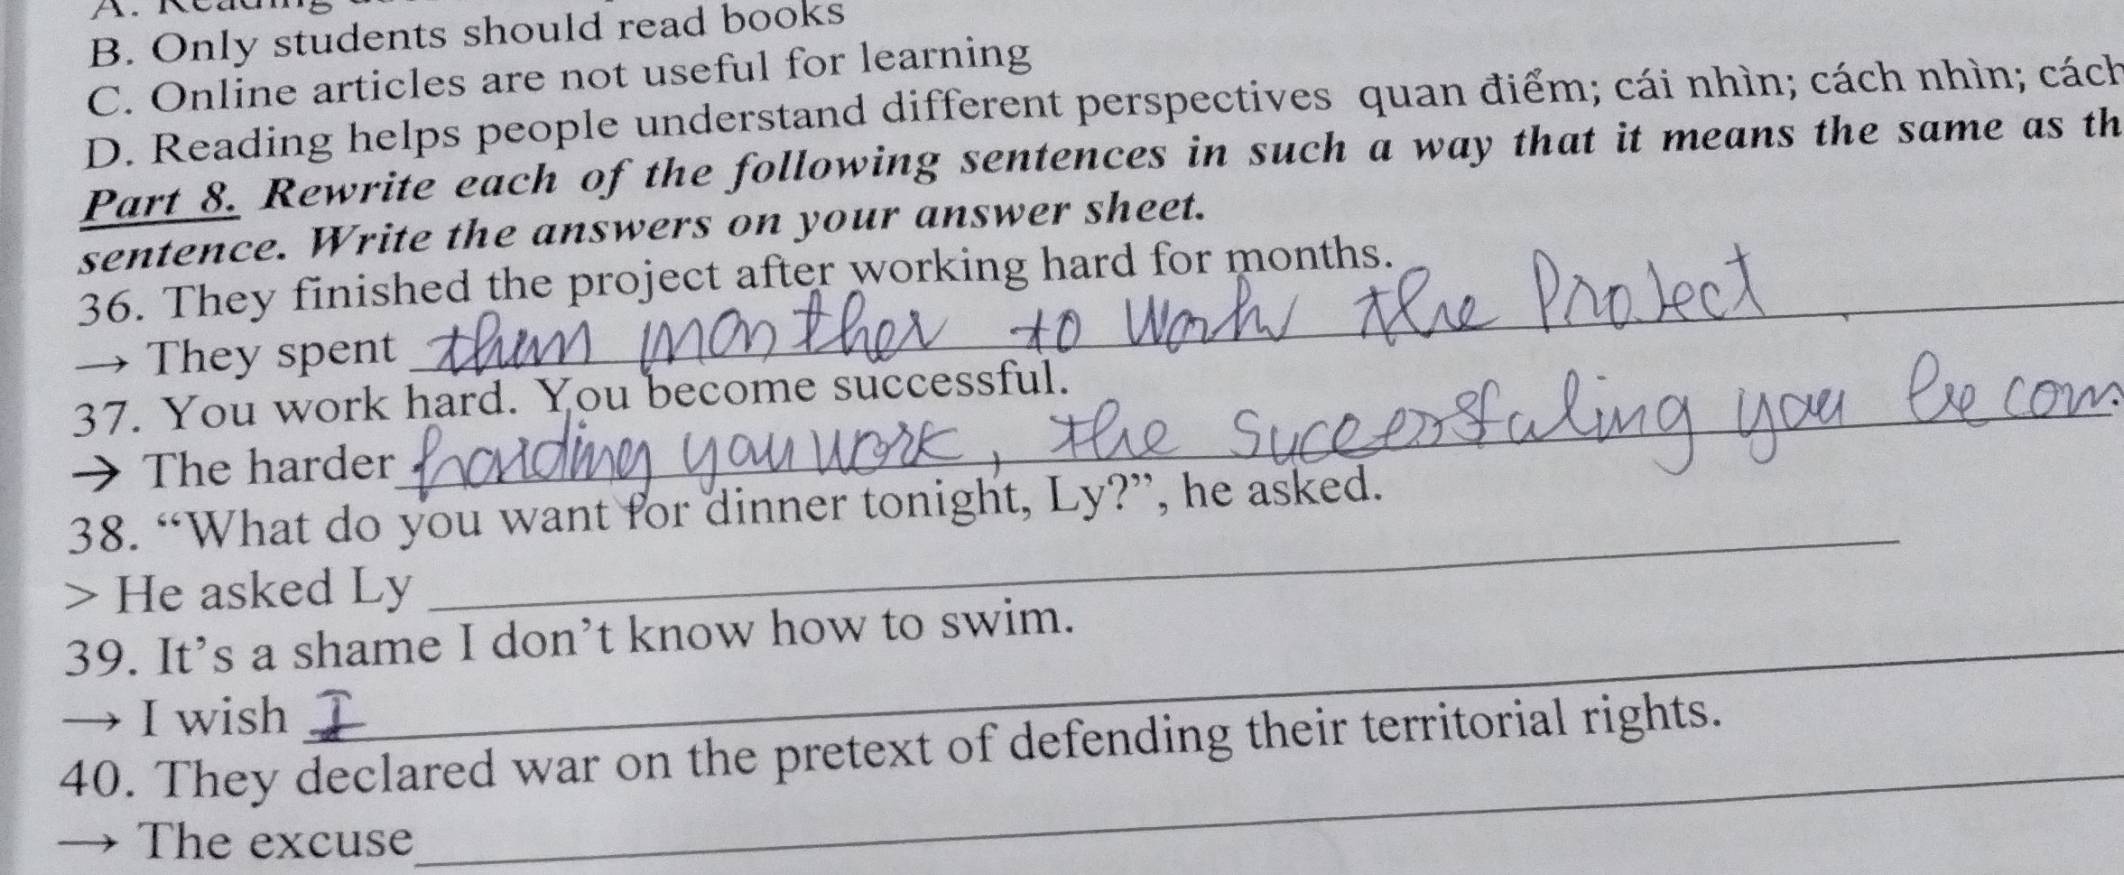 B. Only students should read books
C. Online articles are not useful for learning
D. Reading helps people understand different perspectives quan điểm; cái nhìn; cách nhìn; cách
Part 8. Rewrite each of the following sentences in such a way that it means the same as th
sentence. Write the answers on your answer sheet.
36. They finished the project after working hard for months.
→ They spent them to work the Project
37. You work hard. You become successful.
→ The harder you work, the you becom
38. “What do you want for dinner tonight, Ly?”, he asked.
> He asked Ly
39. It’s a shame I don’t know how to swim.
→ I wish I
40. They declared war on the pretext of defending their territorial rights.
→ The excuse